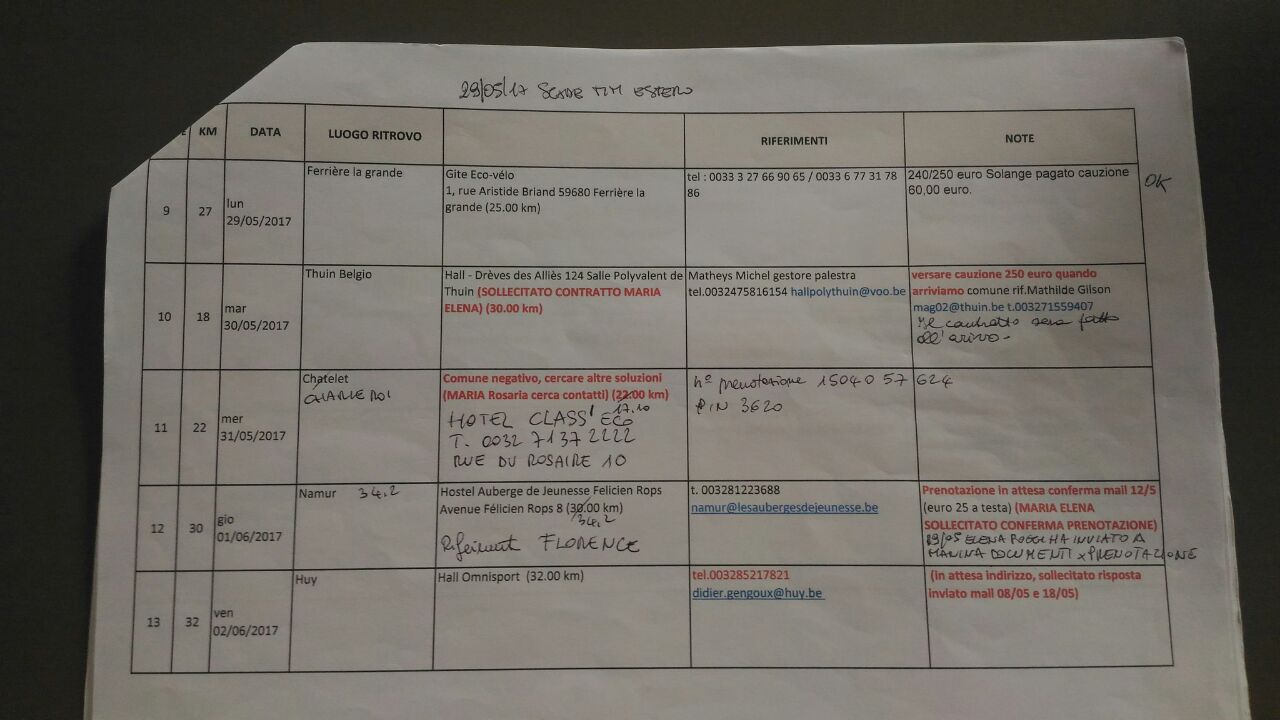 29/05/17 SCADE TIM ESTERO
E KM DATA LUOGO RITROVO RIFERIMENTI NOTE
9
27
lun
29/05/2017
Ferrière la grande
Gite Eco-vélo
1, rue Aristide Briand 59680 Ferrière la
grande (25.00 km)
tel : 0033 3 27 66 90 65 / 0033 6 77 31 78
86
240/250 euro Solange pagato cauzione
60,00 euro.
OK
10
18
mar
30/05/2017
Thuin Belgio
Hall - Drèves des Alliès 124 Salle Polyvalent de
Thuin (SOLLECITATO CONTRATTO MARIA
ELENA) (30.00 km)
Matheys Michel gestore palestra
tel.0032475816154 hallpolythuin@voo.be
versare cauzione 250 euro quando
arriviamo comune rif.Mathilde Gilson
mag02@thuin.be t.003271559407
Il contratto sera fatto
all'arrivo -
11
22
mer
31/05/2017
Chatelet
CHARLEROI
Comune negativo, cercare altre soluzioni
(MARIA Rosaria cerca contatti) (22.00 km)
17.10
HOTEL CLASS' ECO
T. 0032 71372222
RUE DU ROSAIRE 10
n° prenotazione 1504057624
PIN 3620
12
30
gio
01/06/2017
Namur 34,2
Hostel Auberge de Jeunesse Felicien Rops
Avenue Félicien Rops 8 (30.00 km)
34,2
FLORENCE
t. 003281223688
namur@lesaubergesdejeunesse.be
Prenotazione in attesa conferma mail 12/5
(euro 25 a testa) (MARIA ELENA
SOLLECITATO CONFERMA PRENOTAZIONE)
19/05 ELENA POGGI HA INVIATO A
MARINA DOCUMENTI x PRENOTAZIONE
13
32
ven
02/06/2017
Huy
Hall Omnisport (32.00 km)
tel.003285217821
didier.gengoux@huy.be
(in attesa indirizzo, sollecitato risposta
inviato mail 08/05 e 18/05)